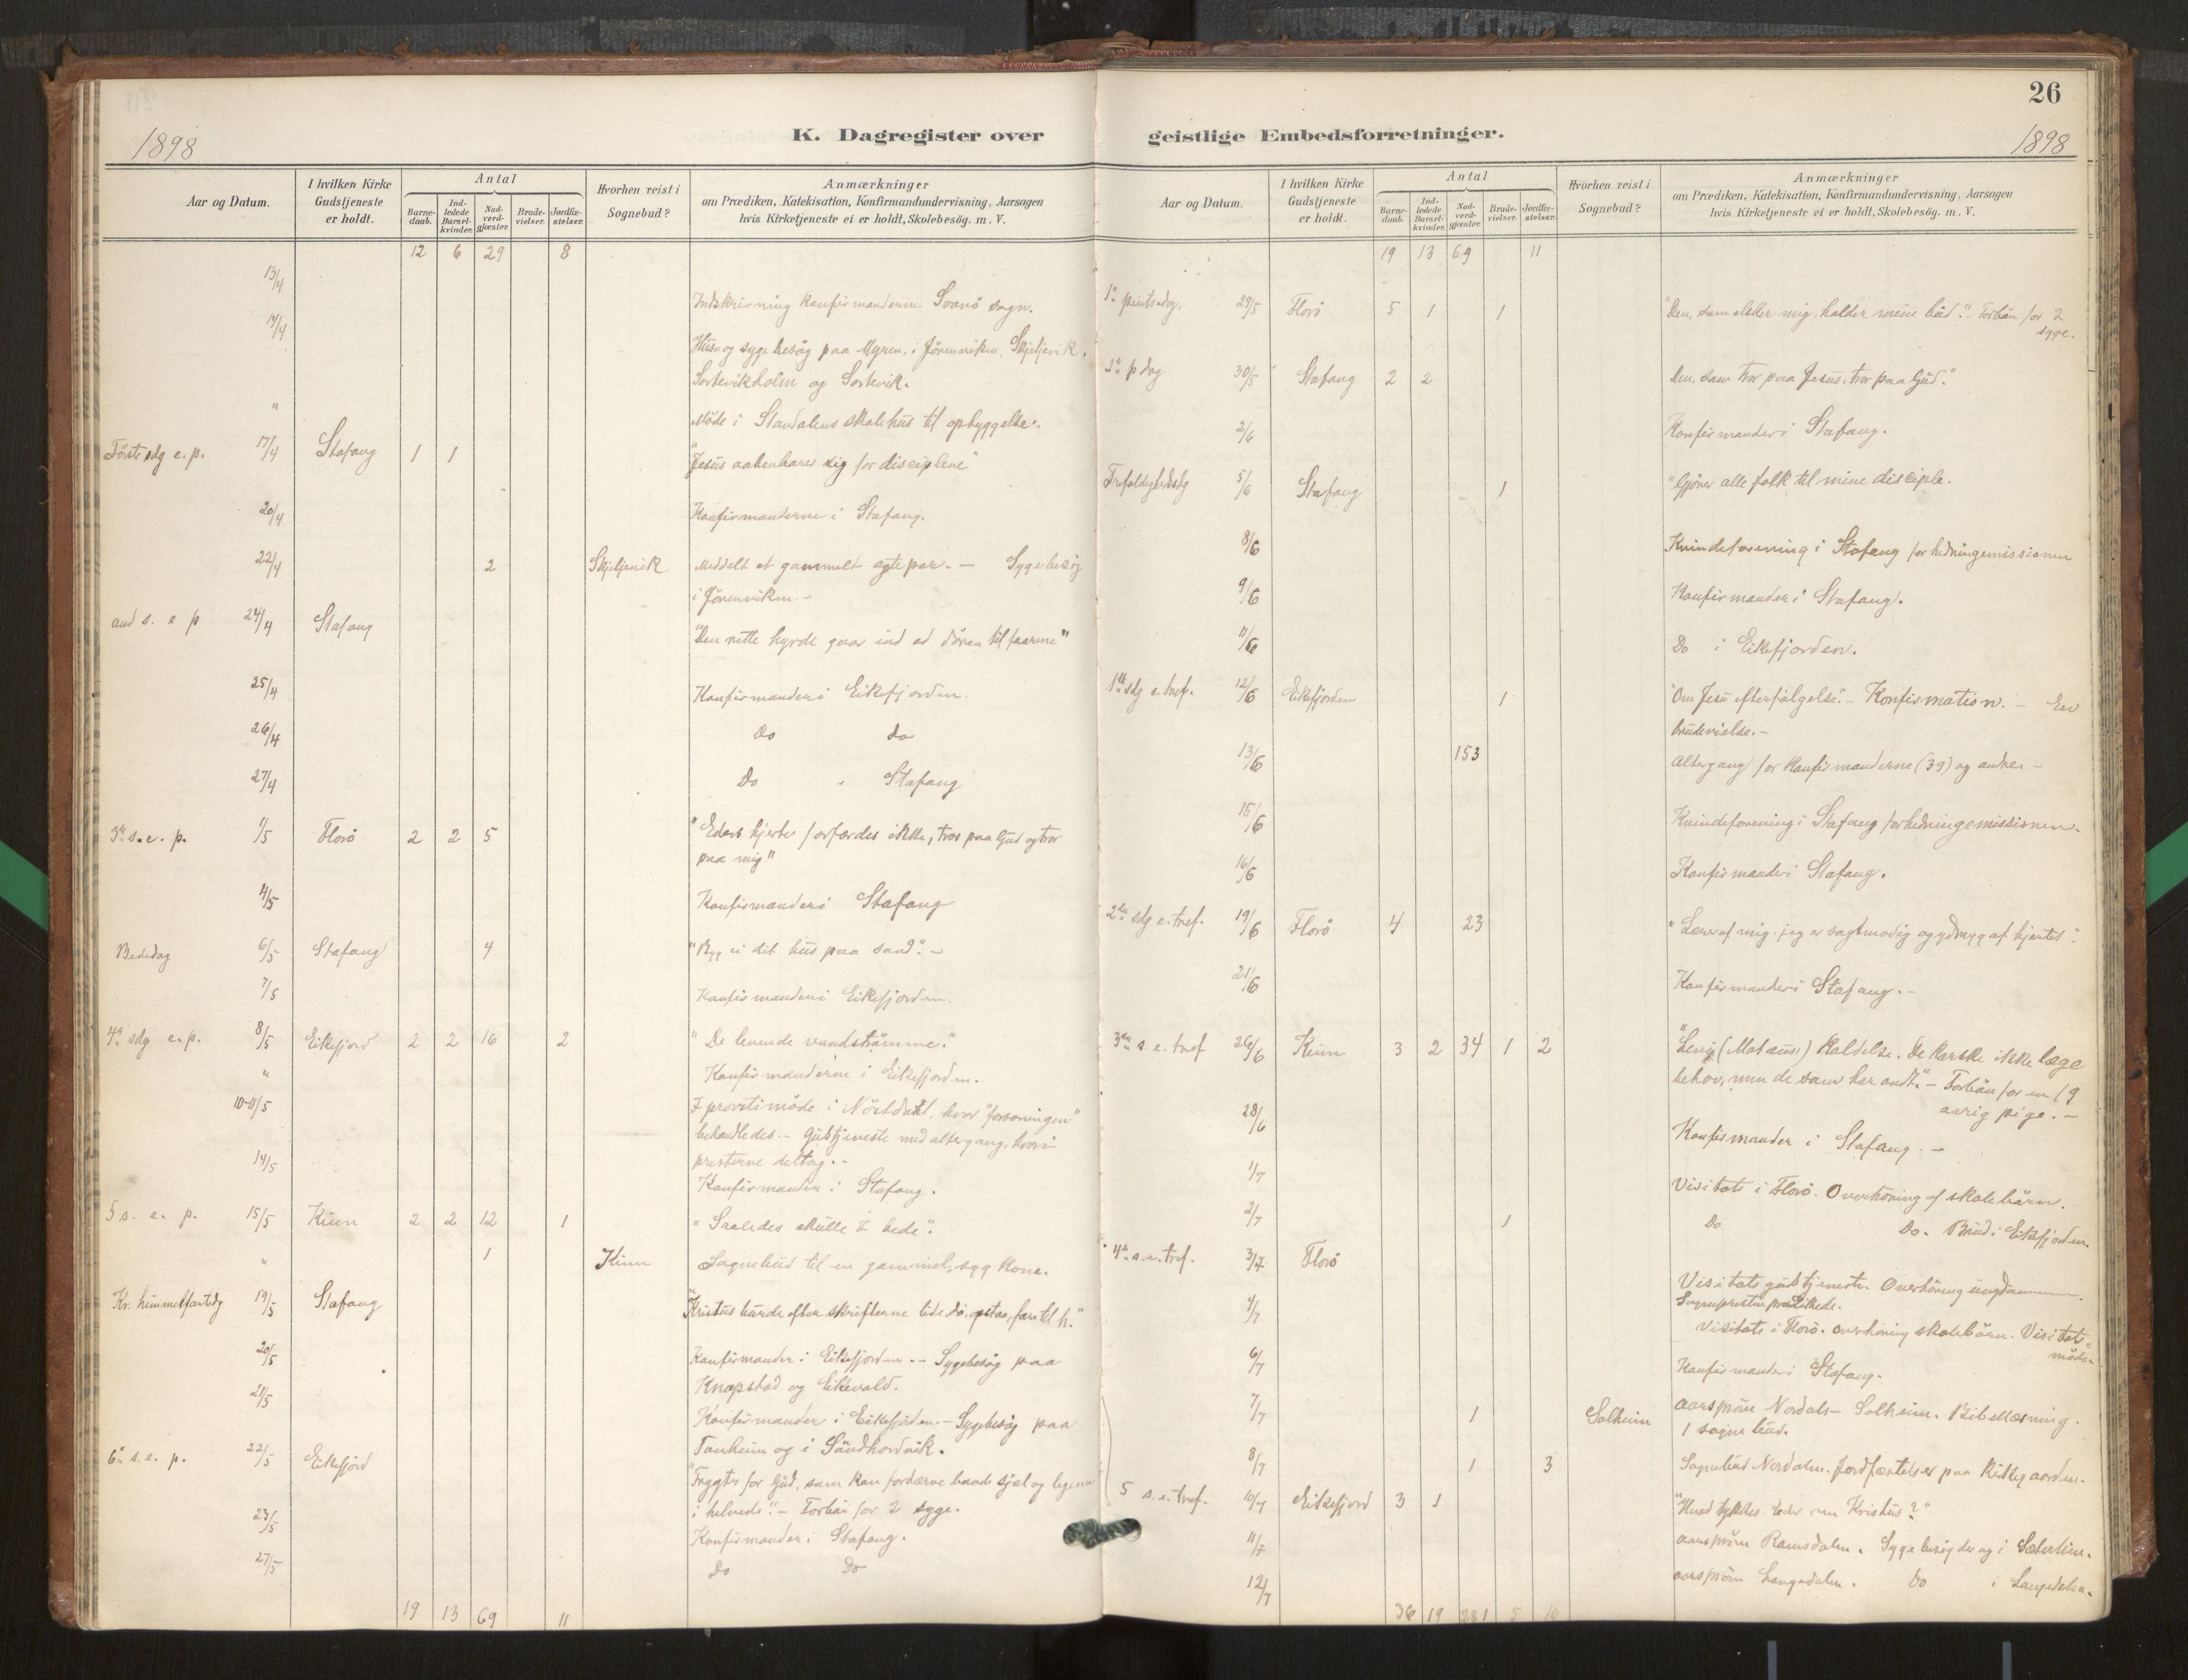 26
1898
K. Dagregister over
geistlige Embedsforretninger.
1898
Aar og Datum.
I hvilken Kirke Gudstjeneste er holdt.
Antal
Barne-daab.
Ind-ledede Barsel-kvinder.
Nad-verd-gjæster.
Brude-vielser.
Jordfæ-stelser.
Hvorhen reist i Sognebud?
Anmærkninger
om Prædiken, Katekisation, Konfirmandundervisning, Aarsagen
hvis Kirketjeneste ei er holdt, Skolebesög. m. V.
12 6 29 8
13/4 Indskrivning konfirmanderne Svanö sogn.
14/4 Hus- og sygebesög paa Myren, i Jörenviken, Skjeljevik,
Sortevikholm og Sortevik.
" Möde i Standalens skolehus til opbyggelse.
Förste sdg e. p. 17/4 Stafang 1 1 "Jesus aabenbarer sig for disciplene"
20/4 Konfirmanderne i Stafang.
22/4 2 Skjeljevik Meddelt et gammelt egtepar. — Sygebesög
i Jörenviken. -
and s. e p 24/4 Stafang "Den rette hyrde gaar ind ad dören til faarene"
25/4 Konfirmander i Eikefjorden.
26/4 Do do
27/4 Do " Stafang
3die s. e. p. 1/5 Florö 2 2 5 "Eders hjerte forfærdes ikke, tror paa Gud og tror
paa mig"
4/5 Konfirmander i Stafang
Bededag 6/5 Stafang 4 "Byg ei dit hus paa sand". -
7/5 Konfirmander i Eikefjorden.
4de sdg e. p. 8/5 Eikefjord 2 2 16 2 "De levende vandströmme."
" Konfirmanderne i Eikefjorden.
10-11/5 I provstimöde i Nörddahl, hvor "forsoningen"
behandledes. - Gudstjeneste med altergang, hvori
presterne deltog. -
14/5 Konfirmander i Stafang.
5 s. e. p. 15/5 Kinn 2 2 12 1 "Saaledes skulle I bede".
" 1 Kinn Sognebud til en gammel, syg kone.
Kr. himmelfartsdg 19/5 Stafang "Kristus burde efter skrifterne lide, dö, opstaa, fare til h."
20/5 Konfirmander i Eikefjorden. - Sygebesög paa
Knapstad og Eikevold.
21/5 Konfirmander i Eikefjorden. - Sygebesög paa
Tonheim og i Sandhordvik.
6te s. e. p. 22/5 Eikefjord "Frygter for Gud, som kan fordærve baade sjæl og legeme
i helvede". - Forbön for 2 syge.
23/5 Konfirmander i Stafang.
27/5 Do Do
19 13 69 11
Aar og Datum.
I hvilken Kirke Gudstjeneste er holdt.
Antal
Barne-daab.
Ind-ledede Barsel-kvinder.
Nad-verd-gjæster.
Brude-vielser.
Jordfæ-stelser.
Hvorhen reist i Sognebud?
Anmærkninger
om Prædiken, Katekisation, Konfirmandundervisning, Aarsagen
hvis Kirketjeneste ei er holdt, Skolebesög. m. V.
19 13 69 11
1ste pintsedg. 29/5 Florö 5 1 1 "Den, som elsker mig, holder mine bud". - Forbön for 2
syge.
2den p dag 30/5 Stafang 2 2 Den, som tror paa Jesus, tror paa Gud."
2/6 Konfirmander i Stafang.
Trefoldighedsdg 5/6 Stafang 1 "Gjörer alle folk til mine disciple.
8/6 Kvindeforening i Stafang for hedningemissionen
9/6 Konfirmander i Stafang.
11/6 Do i Eikefjorden.
1ste sdg e. tref. 12/6 Eikefjorden 1 "Om Jesu efterfölgelse". - Konfirmation. - En
brudevielse. -
13/6 153 Altergang for konfirmanderne (39) og andre. -
15/6 Kvindeforening i Stafang for hedningemissionen.
16/6 Konfirmander i Stafang.
2den sdg e. tref. 19/6 Florö 4 23 "Lærer af mig; jeg er sagtmodig og ydmyg af hjertet".
21/6 Konfirmander i Stafang. -
3die s. e. tref 26/6 Kinn 3 2 34 1 2 "Levis (Matæus) kaldelse. De karske ikke læge
behov, men de som har ondt." - Forbön for en 19
aarig pige. -
28/6 Konfirmander i Stafang. -
1/7 Visitats i Florö. Overhöring af skolebörn.
2/7 1 Do Do. Brud i Eikefjorden.
4de s. e. tref. 3/7 Florö Visitatsgudstjeneste. Overhöring ungdommen.
Sognepresten prædikede.
4/7 Visitats i Florö. Overhöring skolebörn. Visitats
möde.
6/7 Konfirmander i Stafang.
7/7 1 Solheim Aarspröve Nordals- Solheim. Bibellæsning.
1 sognebud.
8/7 1 3 Sognebud Nordalen. Jordfæstelser paa kirkegaarden.
5 s. e. tref. 10/7 Eikefjord 3 1 "Hvad tykkes eder om Kristus?"
11/7 Aarspröve Ramsdalen. Sygebesög der og i Sæterlien.
12/7 Aarspröve Langedalen. Do i Langedalen.
36 19 281 5 16